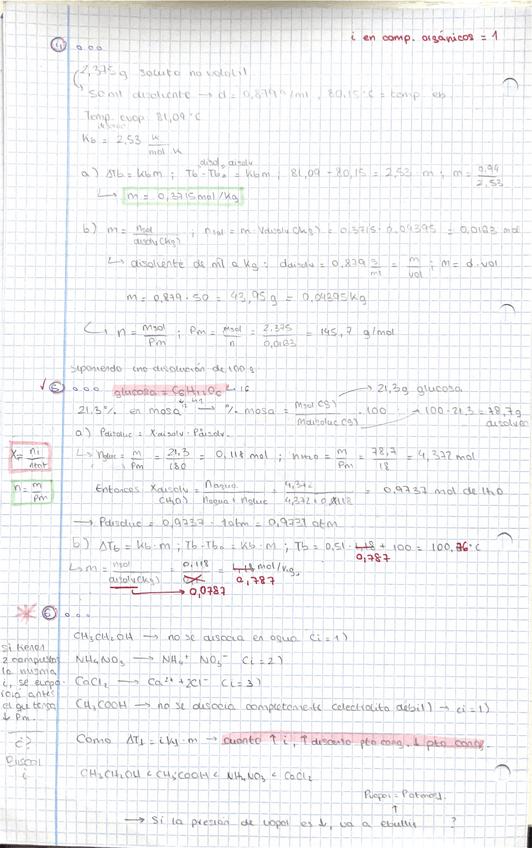 i en comp. orgánicos = 1
④ ...
2,375g soluto no volátil
50ml disolvente → d = 0,879 g/ml, 80,15ºC = temp. eb.
Temp. evap. 81,09ºC
disoluc
Kb = 2,53 K / mol K
a) ΔTb = kbm ; Tb - Tb₀ = kbm ; 81,09 - 80,15 = 2,53 m ; m = 0,94 / 2,53
↳ m = 0,3715 mol/kg
b) m = nsol / disolv(kg) ; nsol = m · disolv(kg) = 0,3715 · 0,04395 = 0,0163 mol
↳ disolvente de ml a kg : ddisolv = 0,879 g/ml = m/vol ; m = d · vol
m = 0,879 · 50 = 43,95g = 0,04395kg
↳ n = msol / Pm ; Pm = msol / n = 2,375 / 0,0163 = 145,7 g/mol
suponiendo una disolución de 100g
⑤ ... glucosa = C₆H₁₂O₆
→ 21,3g glucosa
21,3% en masa → % masa = msol(g) / mdisoluc(g) · 100
100 - 21,3 = 78,7g disolven
a) Pdisoluc = Xdisolv · Pdisolv.
X = ni / ntot
↳ ngluc = m / Pm = 21,3 / 180 = 0,118 mol ; nH₂O = m / Pm = 78,7 / 18 = 4,372 mol
n = m / Pm
Entonces Xdisolv (H₂O) = nagua / nagua + ngluc = 4,372 / 4,372 + 0,118 = 0,9737 mol de H₂O
→ Pdisoluc = 0,9737 · 1atm = 0,9737 atm
b) ΔTb = Kb · m ; Tb - Tb₀ = Kb · m ; Tb = 0,51 · 1,18 + 100 = 100,76ºC
0,787
↳ m = nsol / disolv(kg) = 0,118 = 1,18 mol/kg
0,787
→ 0,0787
⑥ ...
CH₃CH₂OH → no se disocia en agua (i=1)
NH₄NO₃ → NH₄⁺ NO₃⁻ (i=2)
CaCl₂ → Ca²⁺ + 2Cl⁻ (i=3)
CH₃COOH → no se disocia completamente (electrolito débil) → (i=1)
Si tienen
2 compuestos
la misma
i, se evapo-
rará antes
el que tenga
↓ Pm.
¿?
Como ΔTf = i kf · m → cuanto ↑ i, ↑ descenso pto cong. ↓ pto cong.
CH₃CH₂OH < CH₃COOH < NH₄NO₃ < CaCl₂
Pvapor = Patmosf.
↑
→ Si la presión de vapor es ↓, va a ebullir ?